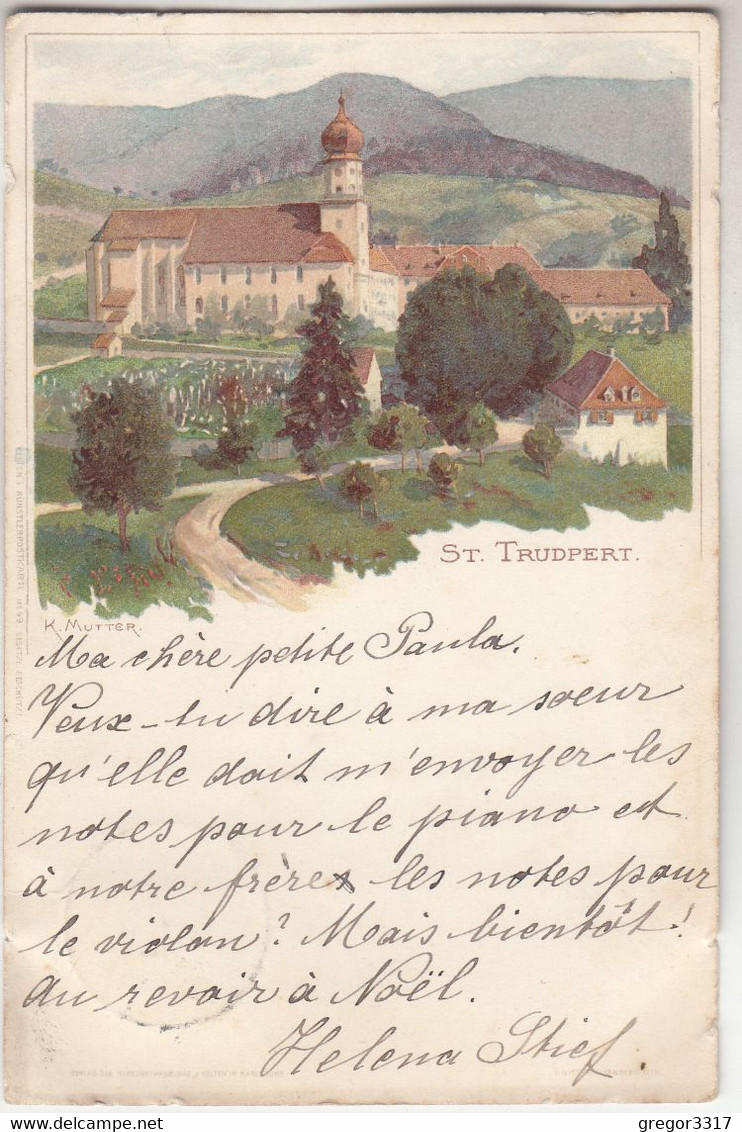 St. Trudpert.
K. Mutter.
Ma chère petite Paula.
Veux-tu dire à ma soeur
qu'elle doit m'envoyer les
notes pour le piano et
à notre frère les notes pour
le violon? Mais bientôt!
Au revoir à Noël.
Helena Stief
gregor3317